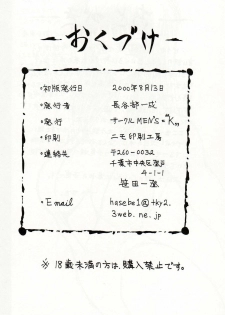 おくづけ
・初版発行日 2000年8月13日
・発行者 長谷部一成
・発行 サークルMEN'S="K"
・印刷 ニモ印刷工房
・連絡先 〒260-0032
千葉市中央区登戸
4-1-1
笹田一
・Email hasebe1@tky2.
3web.ne.jp
※18歳未満の方は、購入禁止です。